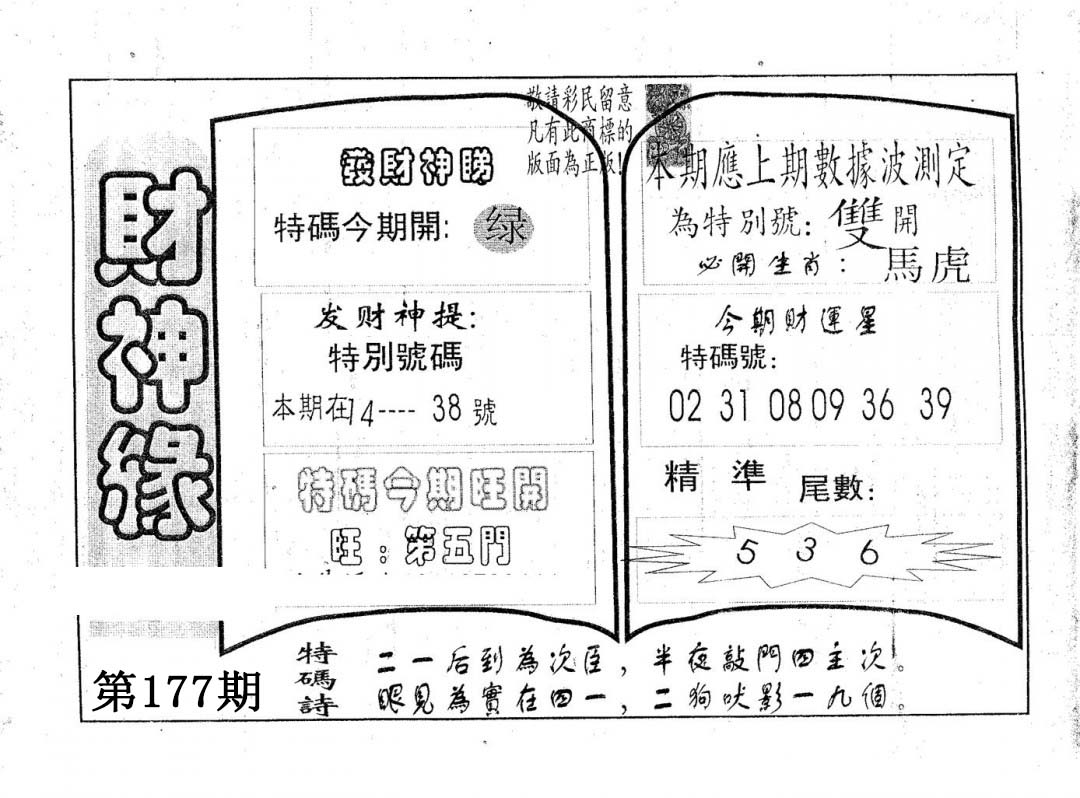 財神緣
第177期
敬請彩民留意
凡有此商標的
版面為正版!
發財神睇
特碼今期開: 绿
发财神提:
特別號碼
本期在14---- 38號
特碼今期旺開
旺: 第五門
本期應上期數據波測定
為特別號: 雙開
必開生肖: 馬虎
今期財運星
特碼號:
02 31 08 09 36 39
精準尾數:
5 3 6
特碼詩
二一后到為次臣, 半夜敲門四主次。
眼見為實在四一, 二狗吠影一九個。